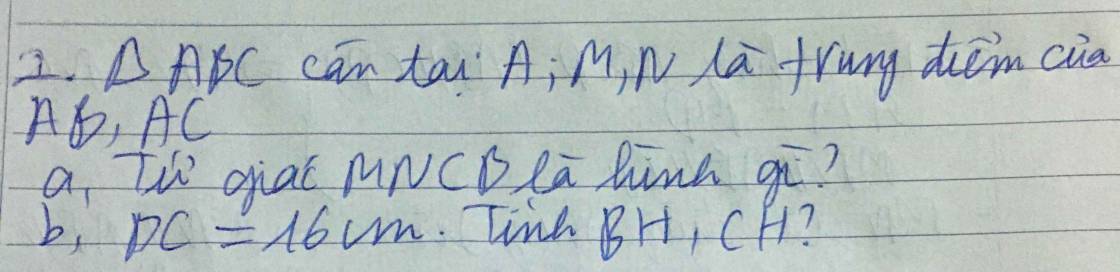 2. Δ ABC cân tại A; M, N là trung điểm của
AB, AC
a, Tứ giác MNCB là hình gì?
b, BC = 16cm. Tính BH, CH?